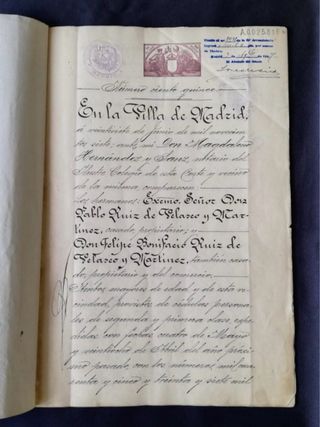 A0025816
Número ciento quince
En la Villa de Madrid,
á veintisiete de Junio de mil novecien-
tos siete: ante mi Don Magdaleno
Hernández y Sanz, notario del
Ilustre Colegio de esta Corte y vecino
de la misma comparecen
los hermanos: Excmo. Señor Don
Pablo Ruiz de Velasco y Mar-
tínez, casado, propietario; y
Don Felipe Bonifacio Ruiz de
Velasco y Martínez, también casa-
do, propietario y del comercio.
Ambos mayores de edad y de esta ve-
cindad, provistos de cédulas persona-
les de segunda y primera clase, expe-
didas con fechas cuatro de Mayo
y veintiocho de Abril del año próxi-
mo pasado, con los números mil cua-
renta y cinco y treinta y siete mil